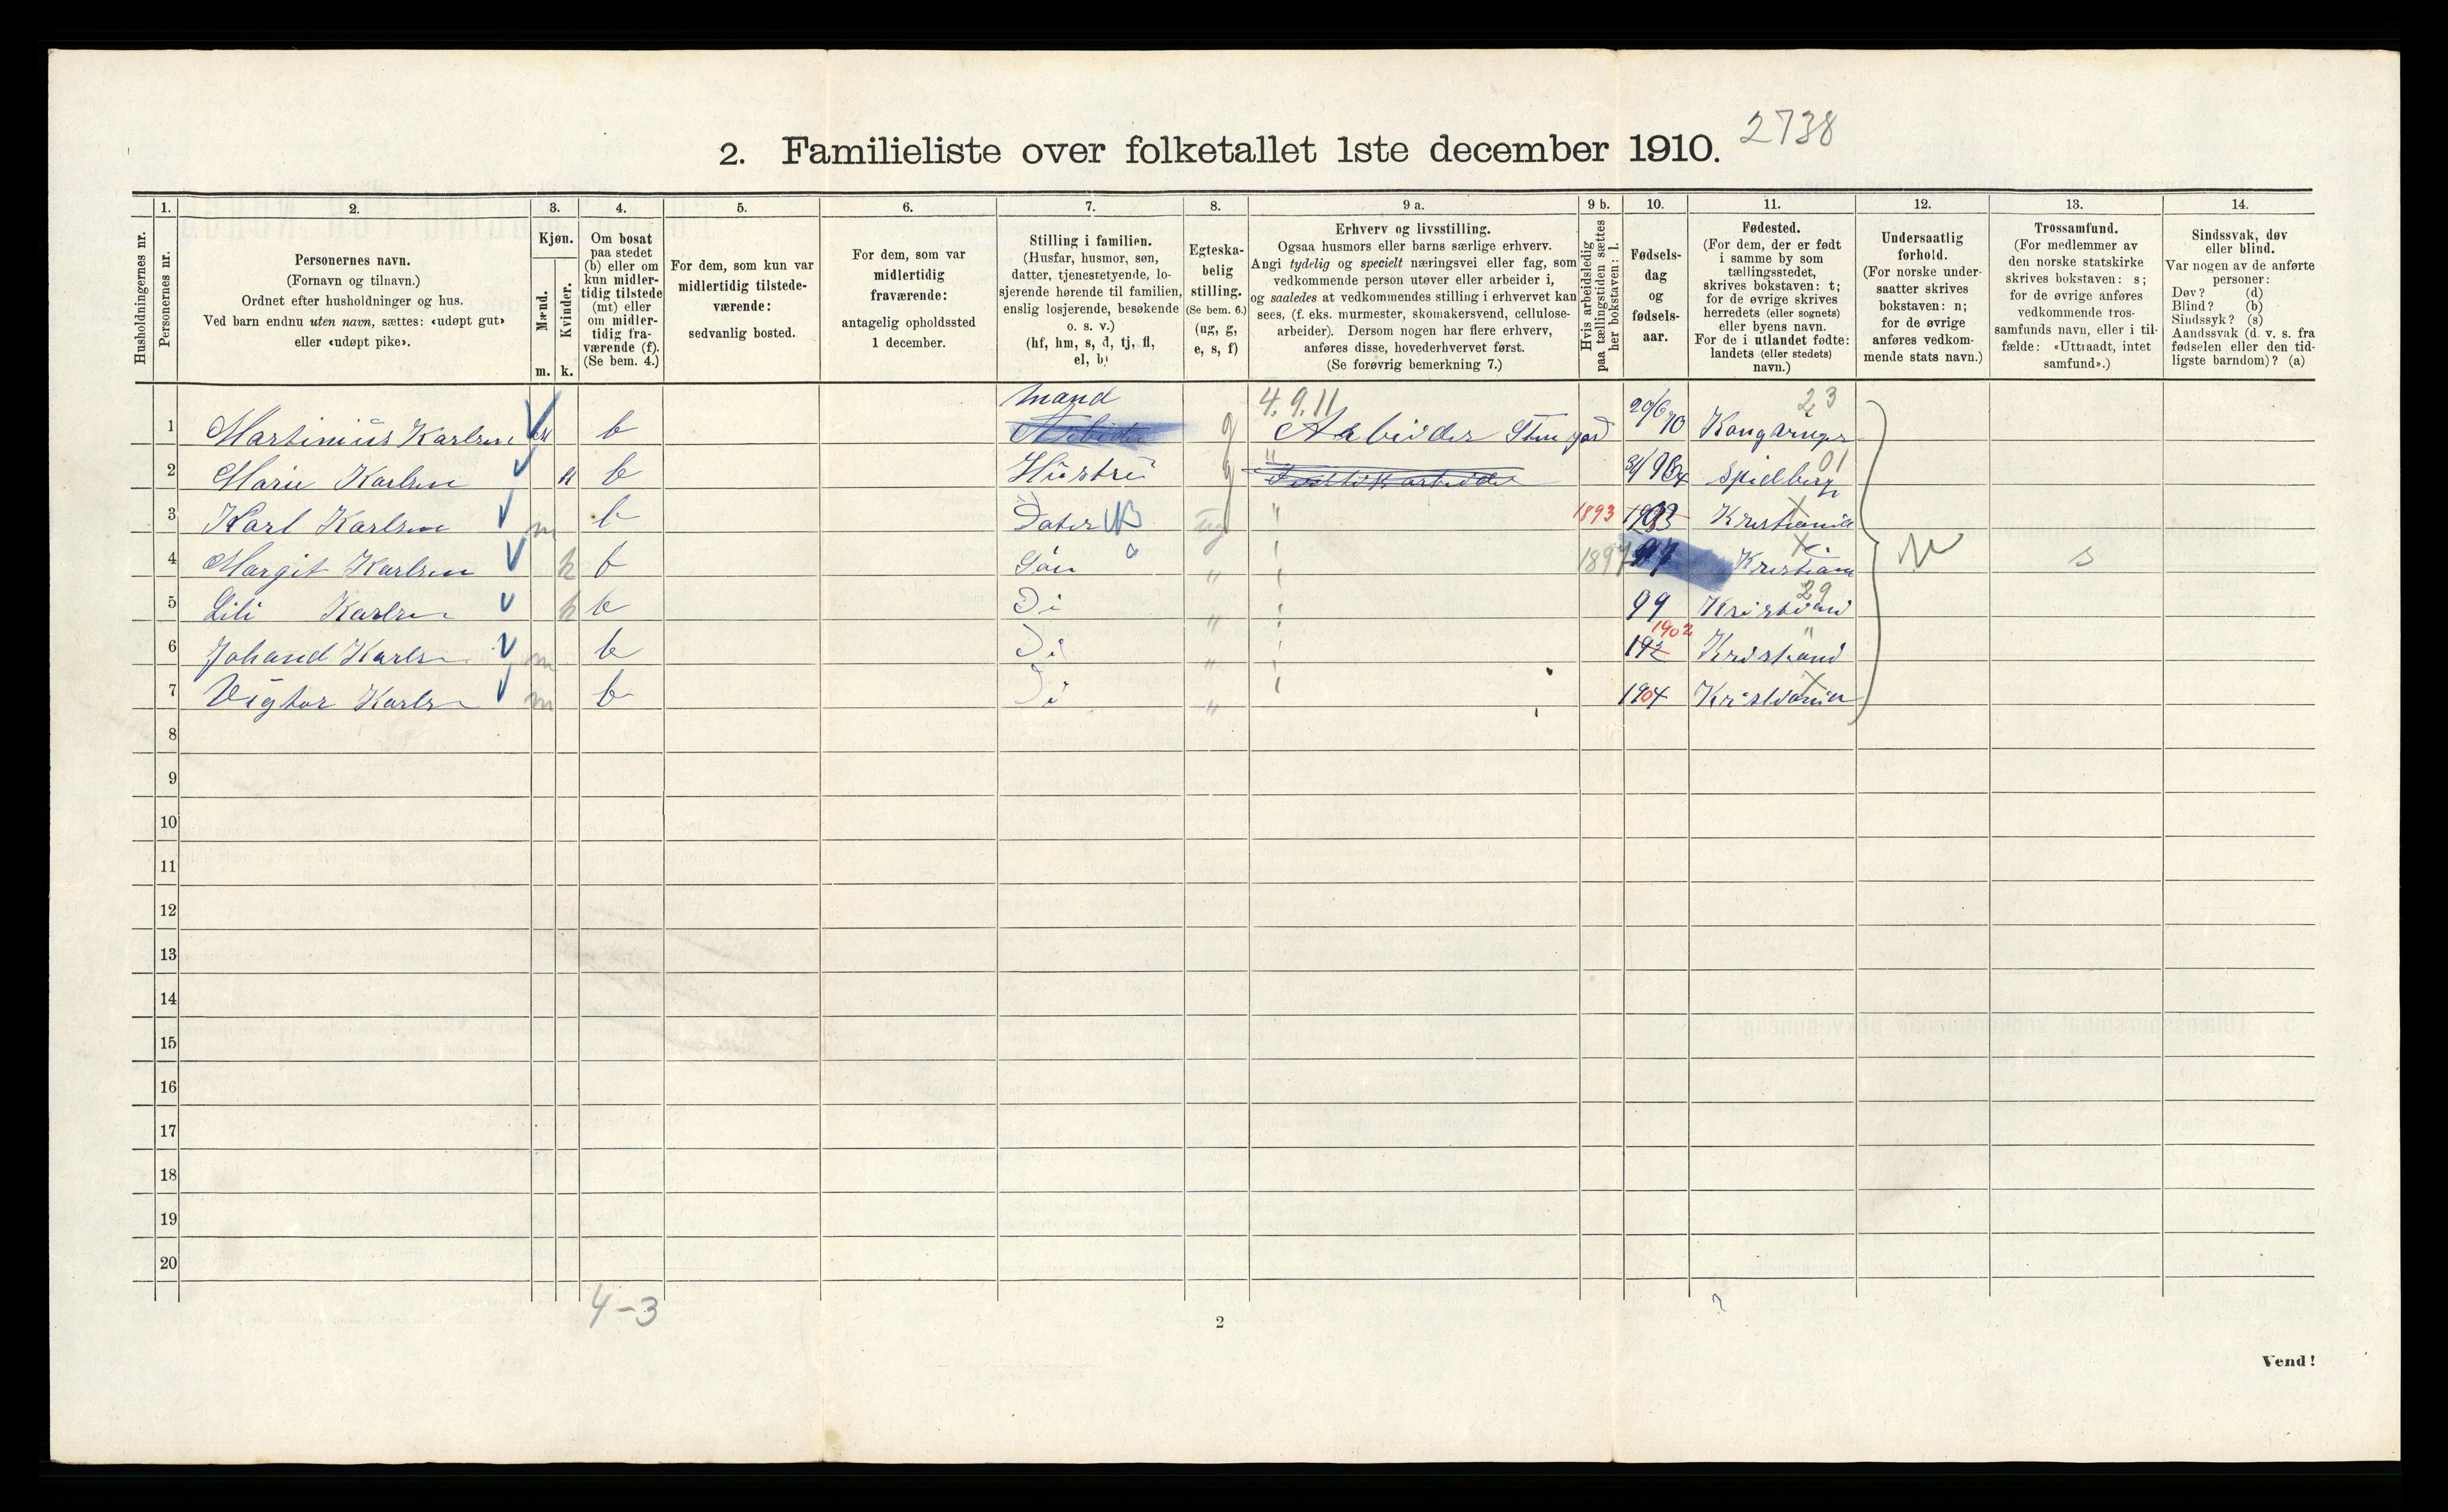 2738
2. Familieliste over folketallet 1ste december 1910.
Husholdningernes nr.
1.
Personernes nr.
2.
Personernes navn.
(Fornavn og tilnavn.)
Ordnet efter husholdninger og hus.
Ved barn endnu uten navn, sættes: «udøpt gut»
eller «udøpt pike».
3.
Kjøn.
Mænd.
Kvinder.
m. k.
4.
Om bosat
paa stedet
(b) eller om
kun midler-
tidig tilstede
(mt) eller
om midler-
tidig fra-
værende (f).
(Se bem. 4.)
5.
For dem, som kun var
midlertidig tilstede-
værende:
sedvanlig bosted.
6.
For dem, som var
midlertidig
fraværende:
antagelig opholdssted
1 december.
7.
Stilling i familien.
(Husfar, husmor, søn,
datter, tjenestetyende, lo-
sjerende hørende til familien,
enslig losjerende, besøkende
o. s. v.)
(hf, hm, s, d, tj, fl,
el, b)
8.
Egteska-
belig
stilling.
(Se bem. 6.)
(ug, g,
e, s, f)
9 a.
Erhverv og livsstilling.
Ogsaa husmors eller barns særlige erhverv.
Angi tydelig og specielt næringsvei eller fag, som
vedkommende person utøver eller arbeider i,
og saaledes at vedkommendes stilling i erhvervet kan
sees, (f. eks. murmester, skomakersvend, cellulose-
arbeider). Dersom nogen har flere erhverv,
anføres disse, hovederhvervet først.
(Se forøvrig bemerkning 7.)
9 b.
Hvis arbeidsledig
paa tællingstiden sættes
her bokstaven: l.
10.
Fødsels-
dag
og
fødsels-
aar.
11.
Fødested.
(For dem, der er født
i samme by som
tællingsstedet,
skrives bokstaven: t;
for de øvrige skrives
herredets (eller sognets)
eller byens navn.
For de i utlandet fødte:
landets (eller stedets)
navn.)
12.
Undersaatlig
forhold.
(For norske under-
saatter skrives
bokstaven: n;
for de øvrige
anføres vedkom-
mende stats navn.)
13.
Trossamfund.
(For medlemmer av
den norske statskirke
skrives bokstaven: s;
for de øvrige anføres
vedkommende tros-
samfunds navn, eller i til-
fælde: «Uttraadt, intet
samfund».)
14.
Sindssvak, døv
eller blind.
Var nogen av de anførte
personer:
Døv? (d)
Blind? (b)
Sindssyk? (s)
Aandssvak (d. v. s. fra
fødselen eller den tid-
ligste barndom)? (a)
mand 4.9.11 23
1 Martinius Karlsen m b Arbeider g Arbeider 20/6 70 Kongvinger
2 Marie Karlsen k b Hustru g " Spidberg 01
3 Karl Karlsen m b Dater ug " 1893 Kristiania
4 Margit Karlsen k b Sön " " 1897 Kristiania N s
5 Lili Karlsen k b Di " " 99 Kristiand 29
6 Johand Karlsen m b Di " " 1902 Kristiand "
7 Vigtor Karlsen m b Di " " 1904 Kristiania
8
9
10
11
12
13
14
15
16
17
18
19
20
4-3
2
?
Vend!